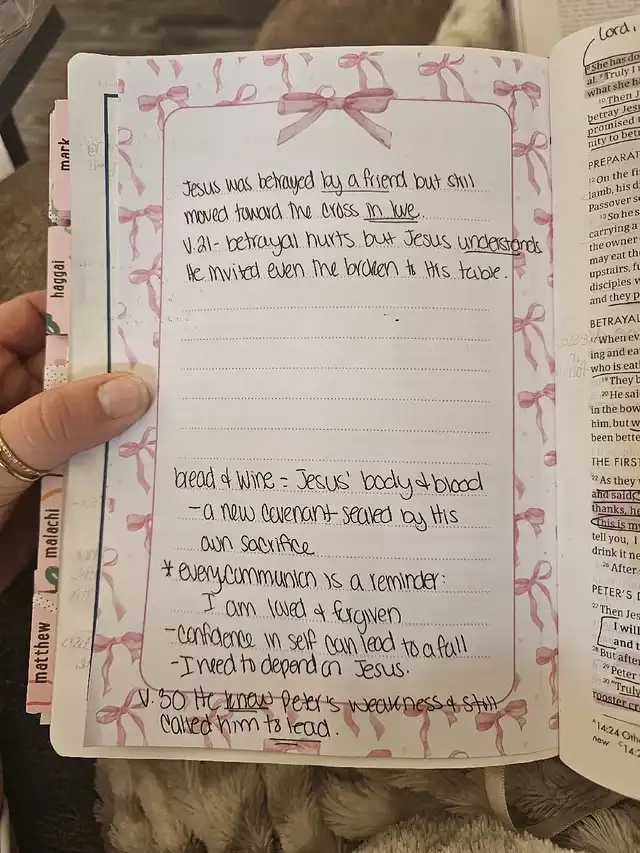 mark
haggai
malachi
matthew
Jesus was betrayed by a friend but still
moved toward the cross in love.
V.21- betrayal hurts but Jesus understands
He invited even the broken to His table.
bread & wine = Jesus' body & blood
-a new covenant sealed by His
own sacrifice
*every communion is a reminder:
I am loved & forgiven
-confidence in self can lead to a fall
-I need to depend on Jesus.
V.30 He knew Peter's weakness & still
called him to lead.
Lord,
She has do
al. "Truly I t
what she ha
10 Then J
betray Jes
promised t
nity to bet
PREPARAT
12 On the fi
lamb, his d
Passover se
13 So he s
carrying a
the owner
may eat the
upstairs, fu
disciples w
and they p
BETRAYAL
17 When ev
ing and eat
who is eati
19 They b
20 He said
in the bow
him, but w
been bette
THE FIRST
22 As they
and said,
thanks, he
This is my
tell you, I
drink it ne
26 After
PETER'S D
27 Then Jes
I will
and t
28 But after
29 Peter
30 "Truly
rooster cr
14:24 Oth
new 14:2